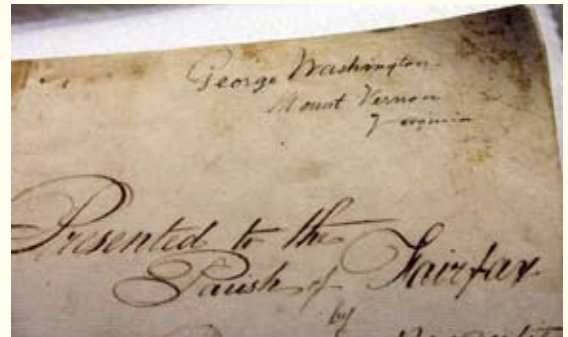 George Washington
Mount Vernon
Virginia
Presented to the
Parish of Fairfax
by